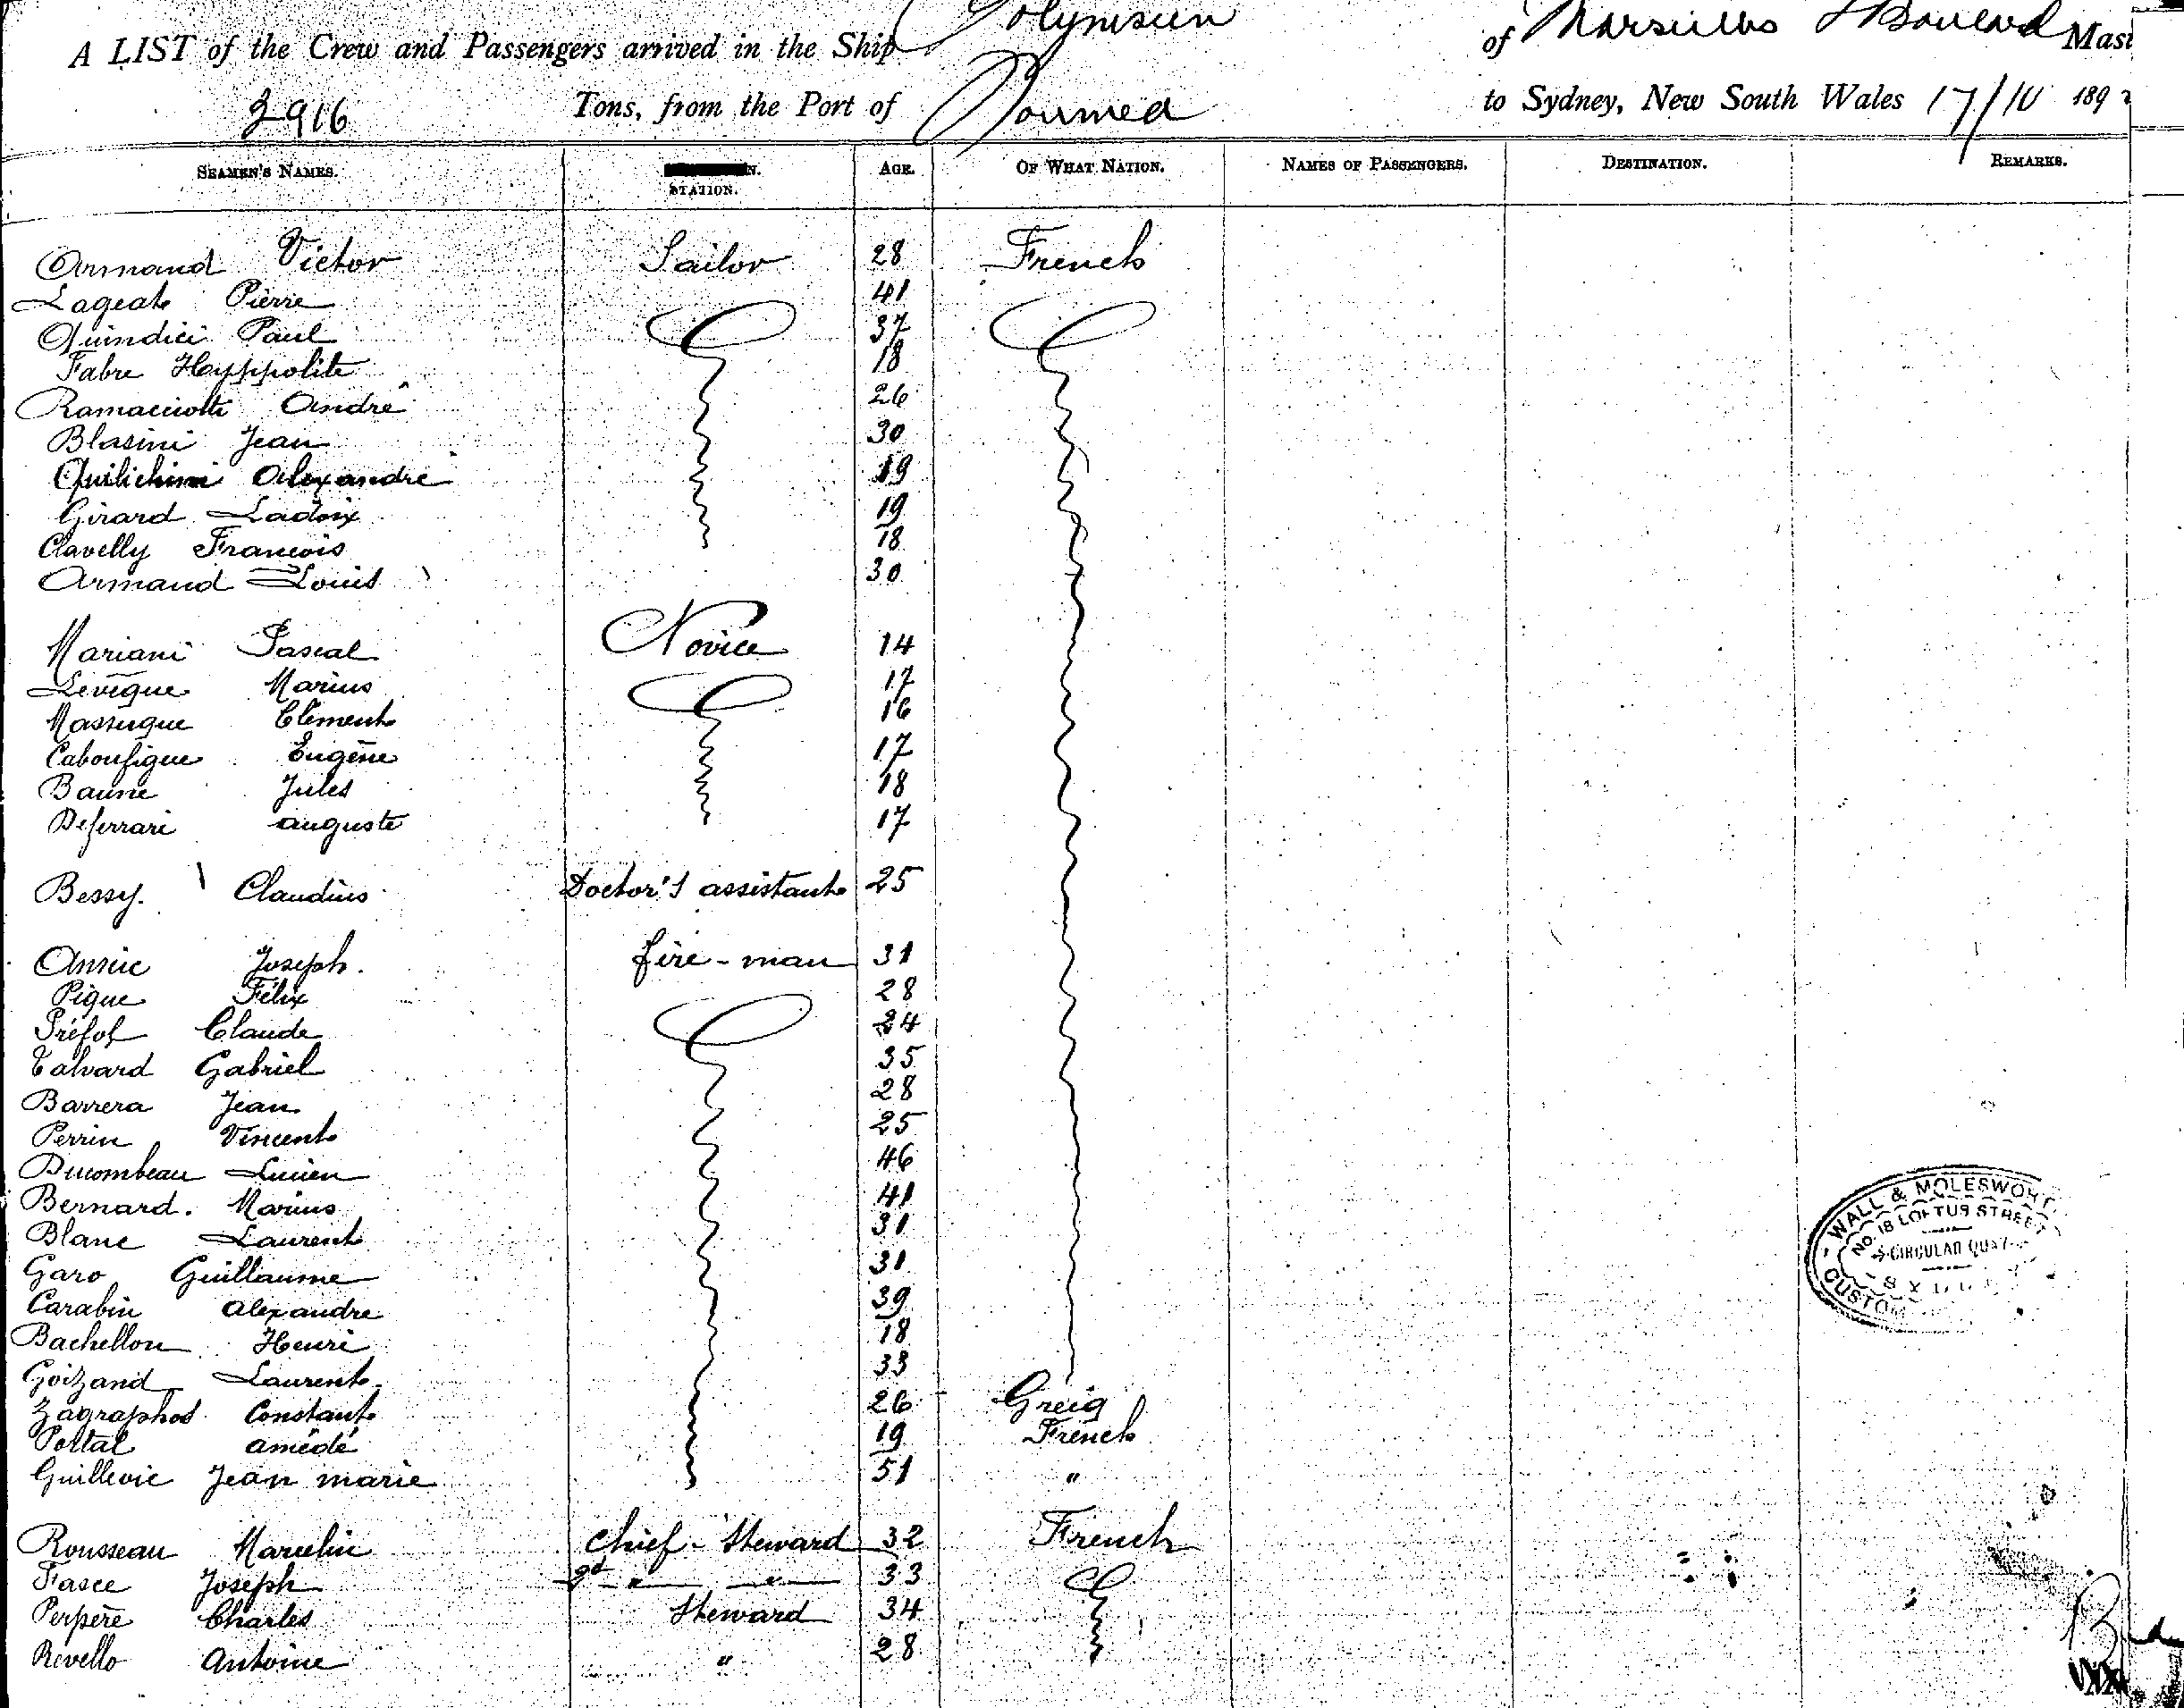 A LIST of the Crew and Passengers arrived in the Ship Polynesien of Marseilles Boulard Mast
2916 Tons, from the Port of Noumea to Sydney, New South Wales 17/10 1892
SEAMEN'S NAMES. STATION. AGE. OF WHAT NATION. NAMES OF PASSENGERS. DESTINATION. REMARKS.
Armand Victor Sailor 28 French
Lageat Pierre 41
Quindici Paul 37
Fabre Hyppolite 18
Ramacciotti André 26
Blasini Jean 30
Quilichini Alexandre 19
Girard Ladoix 19
Clavelly Francois 18
Armand Louis 30
Mariani Pascal Novice 14
Levêque Marius 17
Massugue Clément 16
Caboufigue Eugène 17
Baume Jules 18
Deferrari auguste 17
Bessy. Claudius Doctor's assistant 25
Joseph. fire-man 31
Pique Félix 28
Préfol Claude 24
Talvard Gabriel 35
Barrera Jean 28
Perrin Vincent 25
Ducombeau Lucien 46
Bernard. Marius 41
Blanc Laurent 31
Garo Guillaume 31
Carabin alexandre 39
Bachellon Henri 18
Goizand Laurent 33
Zagraphos Constant 26 Greig
Portal amédé 19 French
Guillevic Jean marie 51 "
Rousseau Marcelin Chief-Steward 32 French
Fasce Joseph 2d " " 33
Perpère Charles Steward 34
Revello Antoine " 28
WALL & MOLESWORT
No. 18 LOFTUS STREET
CIRCULAR QUAY
CUSTOM